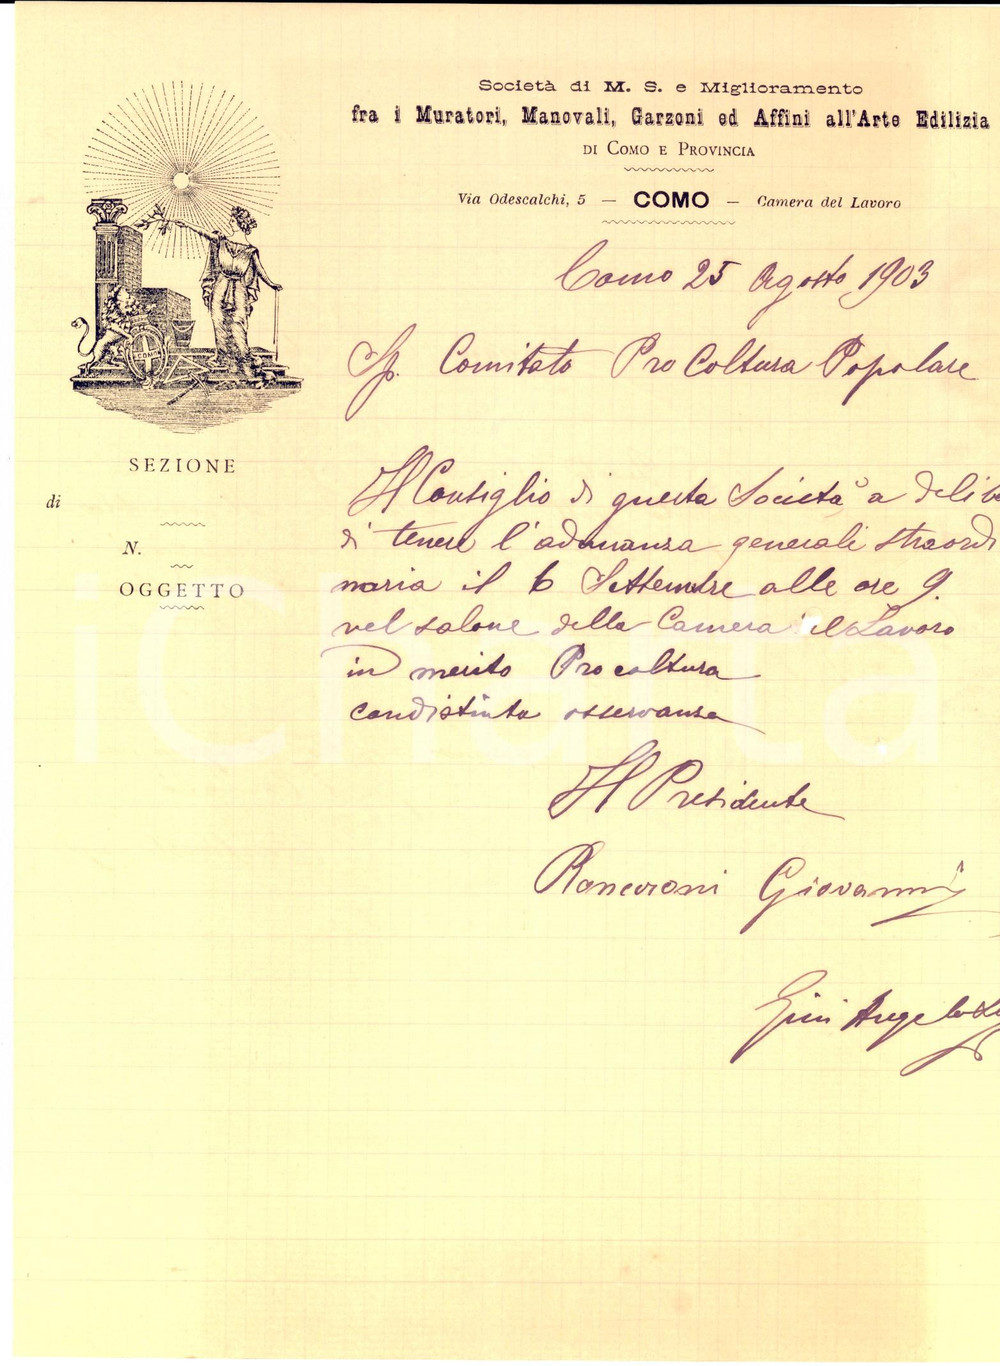 Società di M. S. e Miglioramento
fra i Muratori, Manovali, Garzoni ed Affini all'Arte Edilizia
DI COMO E PROVINCIA
Via Odescalchi, 5 — COMO — Camera del Lavoro
Como 25 Agosto 1903
Sp. Comitato Pro Coltura Popolare
COMO
SEZIONE
di
N.
OGGETTO
Il Consiglio di questa Società a delibe
di tenere l'adunanza generali straordi
naria il 6 Settembre alle ore 9.
nel salone della Camera del Lavoro
in merito Pro coltura
con distinta osservanza
Il Presidente
Roncoroni Giovanni
Gini Angelo
iCharta